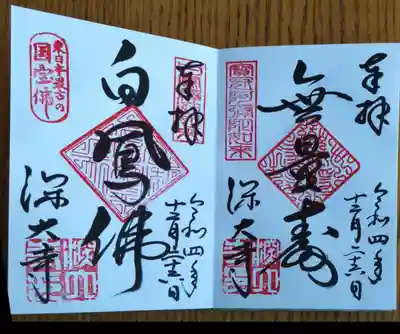 奉拝
寳冠阿彌陀如来
無量壽
令和四年
十二月二十六日
深大寺
奉拝
東日本最古の
国宝佛
白鳳佛
令和四年
十二月二十六日
深大寺